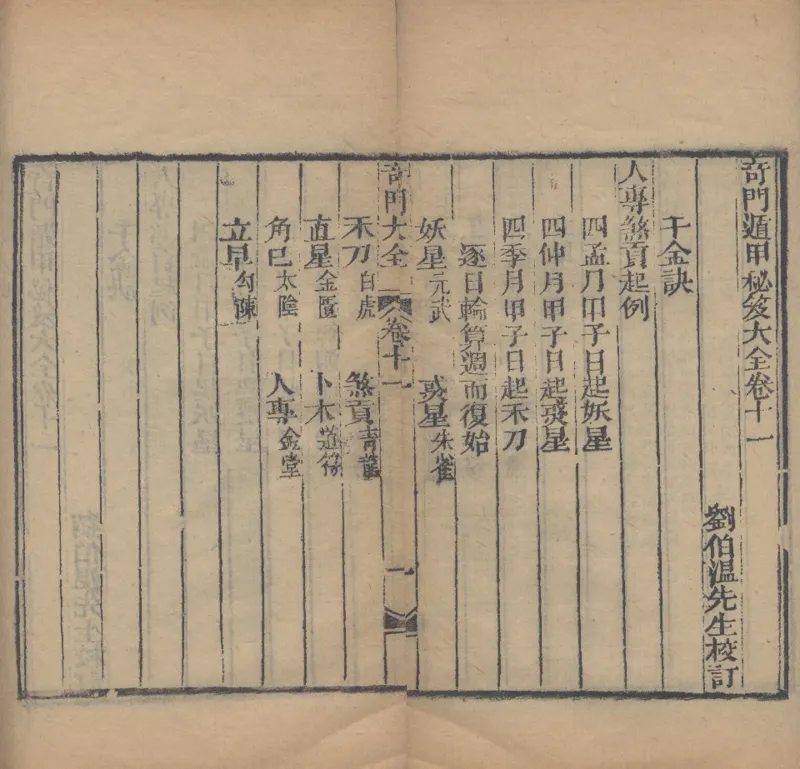 奇門遁甲秘笈大全卷十一
劉伯溫先生校訂
千金訣
人專煞貢起例
四孟月甲子日起妖星
四仲月甲子日起惑星
四季月甲子日起禾刀
逐日輪算週而復始
妖星元武 惑星朱雀
奇門大全 卷十一 一
禾刀白虎 煞貢青龍
直星金匱 卜木道符
角巳太陰 人專金堂
立早勾陳